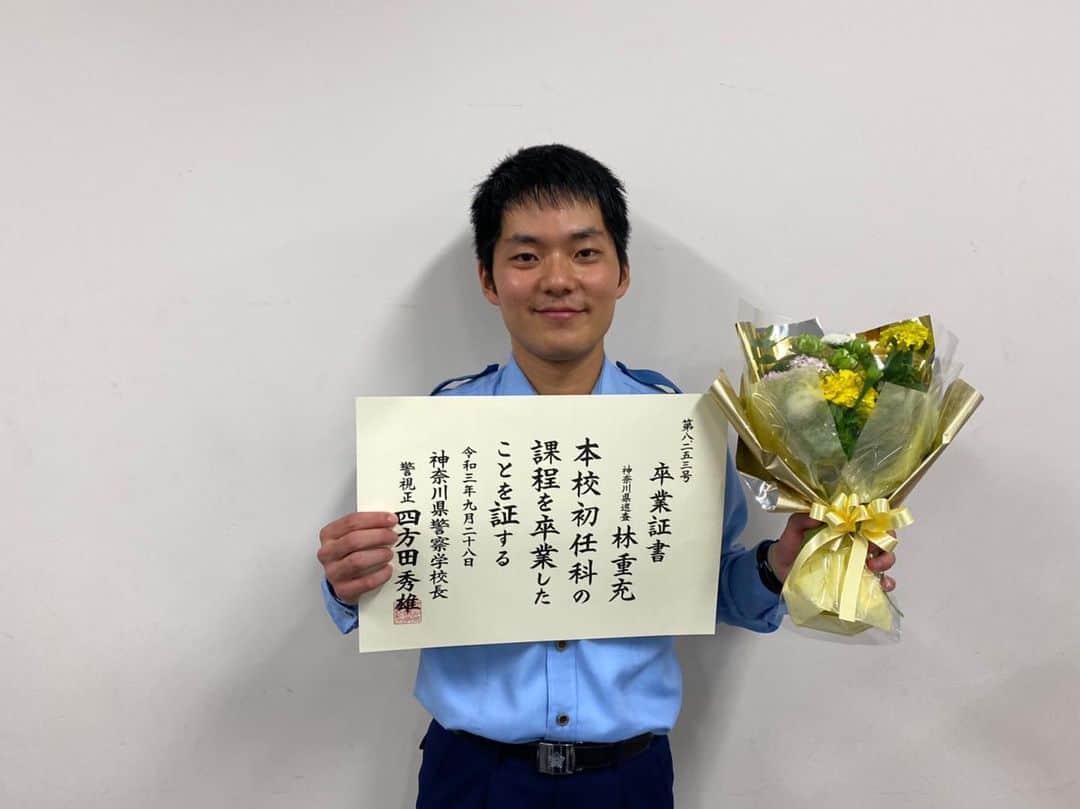 第八二五三号
卒業証書
神奈川県巡査 林重充
本校初任科の
課程を卒業した
ことを証する
令和三年九月二十八日
神奈川県警察学校長
警視正 四方田秀雄